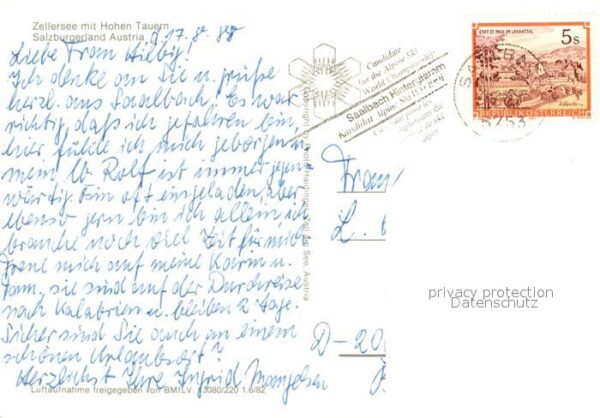 Zellersee mit Hohen Tauern
Salzburgerland Austria
d. 17.8.88
Liebe Frau Hilbig!
Ich denke an Sie u. grüße
herzl. aus Saalbach. Es war
richtig, daß ich gefahren bin,
hier fühle ich mich geborgen u.
mein lb Rolf ist immer gegen
wärtig. Bin oft eingeladen, aber
ebenso gern bin ich allein, ich
brauche noch viel Zeit für mich.
Freue mich auf meine Karin u.
Fam., sie sind auf der Durchreise
nach Kalabrien u. bleiben 2 Tage.
Sicher sind Sie auch an einem
schönen Urlaubsort?
Herzlichst Ihre Ingrid
Luftaufnahme freigegeben von BMfLV. 13080/220 1.6/82
Candidate
for the Alpine Ski
World Championship
Saalbach Hinterglemm
Kandidat Alpine Ski WM
STIFT ST. PAUL IM LAVANTTAL
5 S
REPUBLIK ÖSTERREICH
5753
Zell am See, Austria
Frau
L.
D-200
privacy protection
Datenschutz